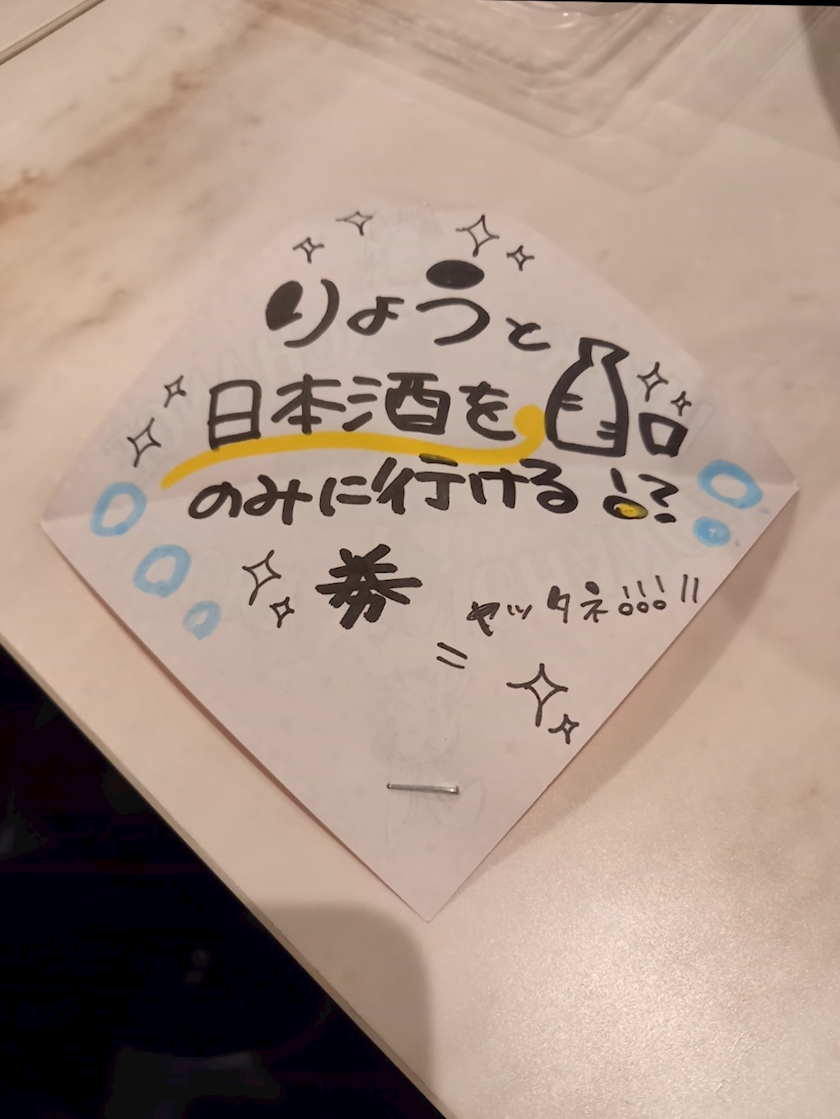 りょうと
日本酒を
のみに行ける!?
券
ヤッタネ!!!